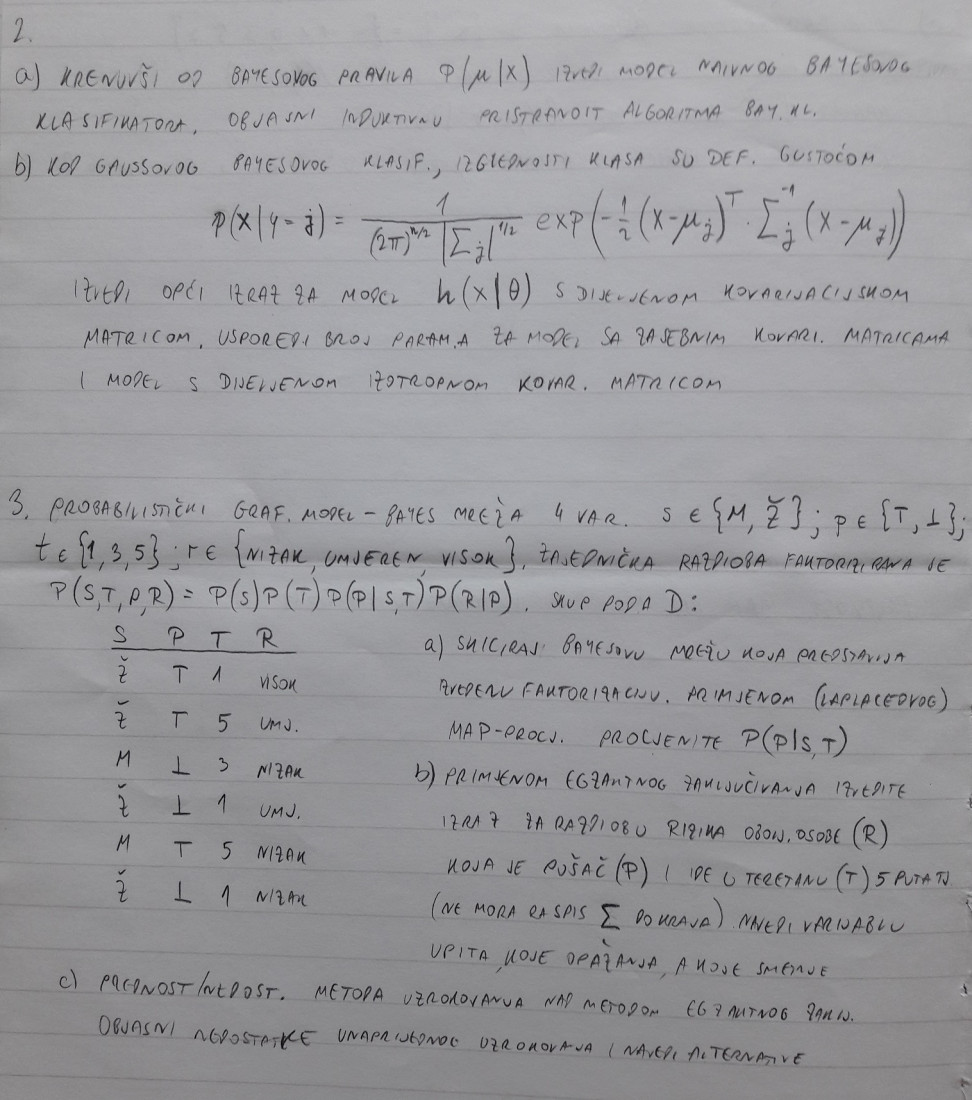 2.
a) KRENUVŠI OD BAYESOVOG PRAVILA P(μ|X) IZVEDI MODEL NAIVNOG BAYESOVOG
KLASIFIKATORA. OBJASNI INDUKTIVNU PRISTRANOST ALGORITMA BAY. KL.
b) KOD GAUSSOVOG BAYESOVOG KLASIF., IZGLEDNOSTI KLASA SU DEF. GUSTOĆOM
p(x|y=j) = 1 / ((2π)^{n/2} |Σ_j|^{1/2}) exp(-1/2 (x-μ_j)^T · Σ_j^{-1} (x-μ_j))
IZVEDI OPĆI IZRAZ ZA MODEL h(x|θ) S DIJELJENOM KOVARIJACIJSKOM
MATRICOM. USPOREDI BROJ PARAM.A ZA MODEL SA ZASEBNIM KOVARI. MATRICAMA
I MODEL S DIJELJENOM IZOTROPNOM KOVAR. MATRICOM
3. PROBABILISTIČKI GRAF. MODEL - BAYES MREŽA 4 VAR. S ∈ {M, Ž}; P ∈ {T, ⊥};
t ∈ {1, 3, 5}; r ∈ {NIZAK, UMJEREN, VISOK}, ZAJEDNIČKA RAZDIOBA FAKTORIZIRANA JE
P(S,T,P,R) = P(S)P(T)P(P|S,T)P(R|P). SKUP PODA D:
S P T R
Ž T 1 VISOK
Ž T 5 UMJ.
M ⊥ 3 NIZAK
Ž ⊥ 1 UMJ.
M T 5 NIZAK
Ž ⊥ 1 NIZAK
a) SKICIRAJ BAYESOVU MREŽU KOJA PREDSTAVLJA
ZVEDENU FAKTORIZACIJU. PRIMJENOM (LAPLACEOVOG)
MAP-PROCJ. PROCJENITE P(P|S,T)
b) PRIMJENOM EGZAKTNOG ZAKLJUČIVANJA IZVEDITE
IZRAZ ZA RAZDIOBU RIZIKA OBOLJ. OSOBE (R)
KOJA JE PUŠAČ (P) I IDE U TERETANU (T) 5 PUTA TJ
(NE MORA RASPIS Σ DO KRAJA) NAVEDI VARIJABLU
UPITA, KOJE OPAŽANJA, A KOJE SMETNJE
c) PREDNOST/NEDOST. METODA UZORKOVANJA NAD METODOM EGZAKTNOG ZAKLJ.
OBJASNI NEDOSTATKE UNAPRIJEDNOG UZORKOVANJA I NAVEDI ALTERNATIVE